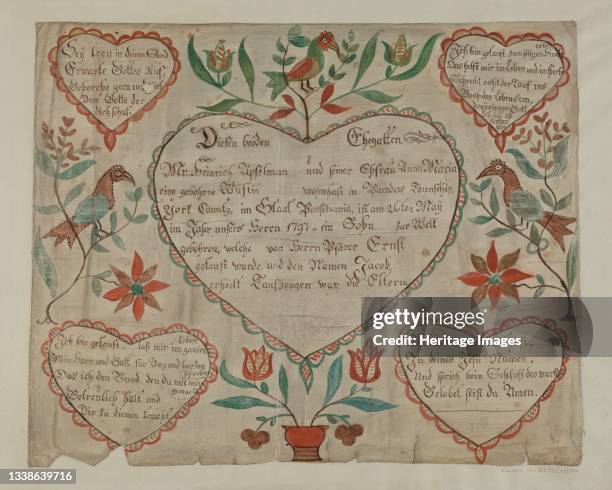 Sey treu in deinem Stand
Erwarte Gottes Ruf,
Gehorche gern und
Dem Gotte der
dich schuf.
Ich bin getauft zum seligen
Das helf mir im Leben und im
der Tauf und
Buch der Leben
Gott
Diesen beiden Ehegatten
Mr. Heinrich Apfelman und seiner Ehfrau Anna Maria
eine gebohrne Wüstin wohnhaft in Taunschip,
York Caunty, im Staad Pensilvania, ist am 26ten May
im Jahr unsers Heren 1791, ein Sohn zur Welt
gebohren, welche von Herrn Pfarer Ernst
getauft wurde, und den Namen Jacob,
erhielt Taufzeugen war die Eltern
Ich bin getauft, laß mir im ganzen
Leben
Mein Herr und Gott für Aug und
Das ich den Bund den du mit mir
Getreulich halt und
Dir
In deines Jesu Namen,
Und sprich beim Schluß des
Gelobet seist du Amen.
gettyimages®
Heritage Images
Credit: Heritage Images
1338639716